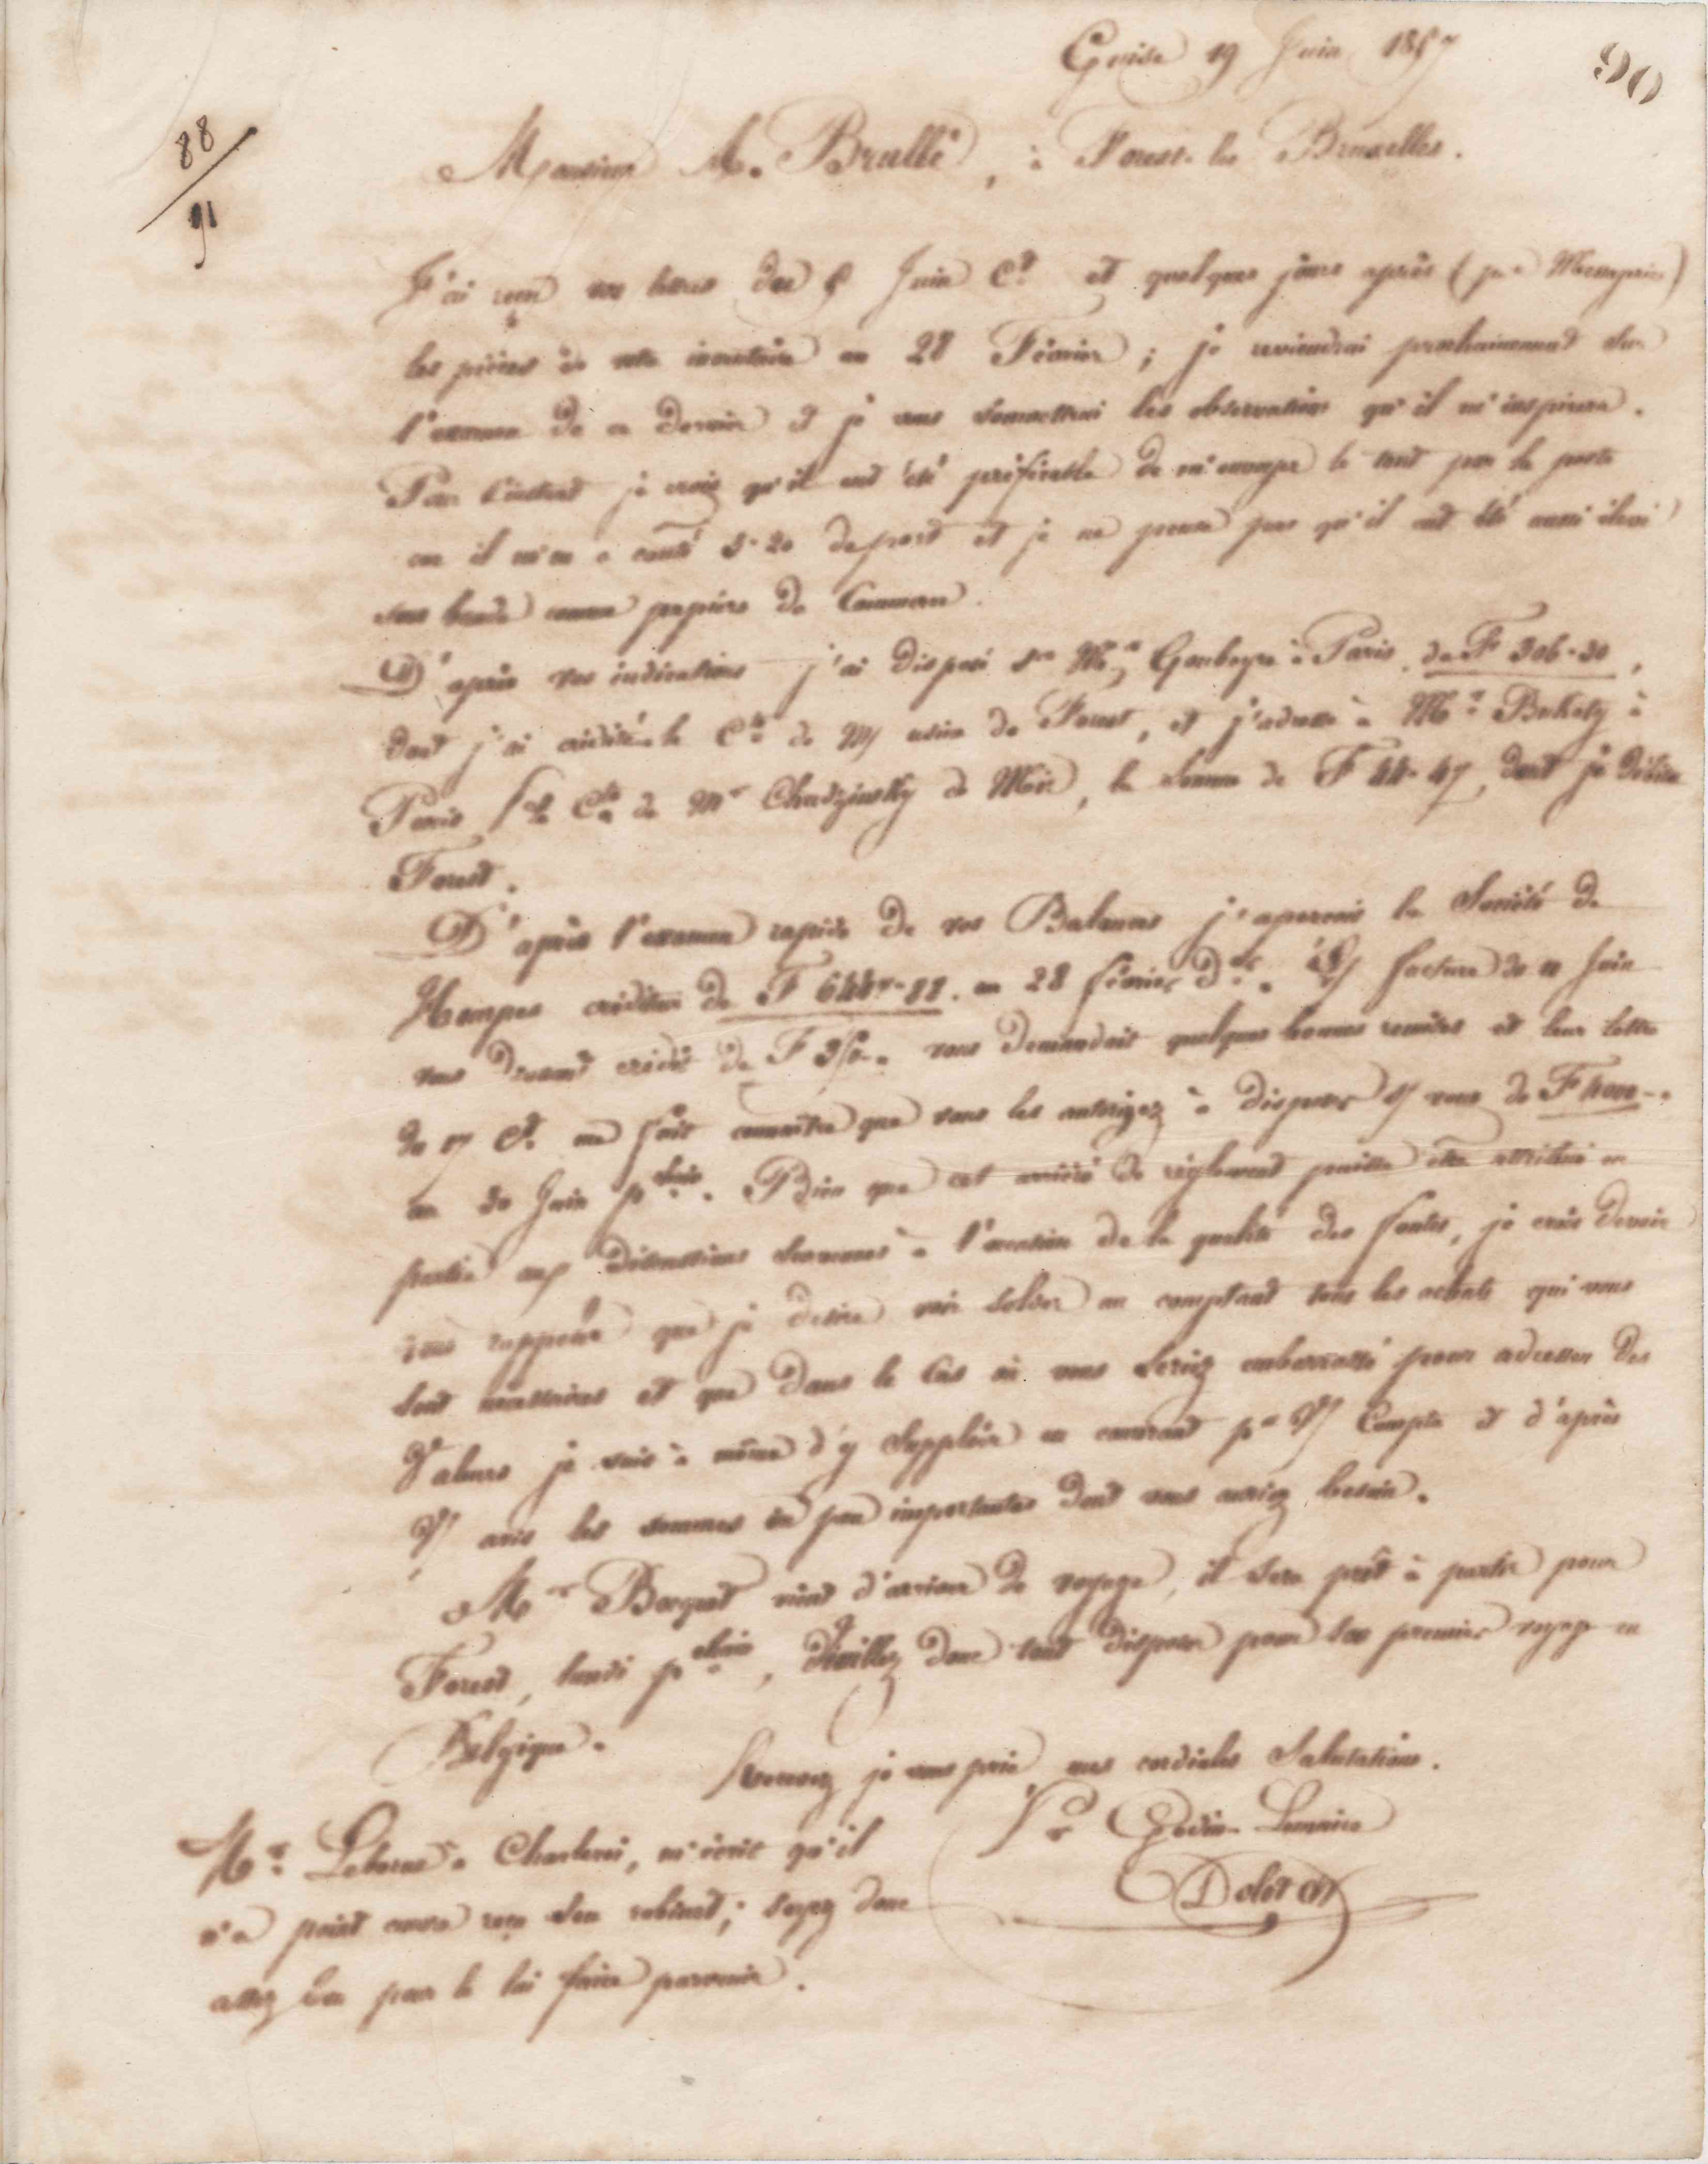 Guise 19 Juin 1857
90
88
91
Monsieur A. Brullé, à Forest-les Bruxelles.
J'ai reçu vos lettres des 5 Juin Ct. et quelques jours après (par Messageries)
les pièces de votre inventaire au 28 Février ; je reviendrai prochainement sur
l'examen de ce dernier et je vous soumettrai les observations qu'il m'inspirera.
Pour l'instant je crois qu'il eut été préférable de m'envoyer le tout par la poste
car il m'en a couté 5-20 de port et je ne pense pas qu'il eut été aussi élevé
sous bande comme papiers de Commerce.
D'après vos indications j'ai disposé sur Mr Goubeyre à Paris de F 306-30,
dont j'ai crédité le Cte de M/ usine de Forest, et j'adresse à Mr à
Paris Ple Cte de Mr Chudzinsky de Mere, la Somme de F 44-47, dont je débite
Forest.
D'après l'examen rapide de vos Balances j'aperçois la Société de
Hourpes créditeur de F 6447-88. au 28 février Dr. facture du 11 Juin
vous donnant crédit de F vous demandait quelques bonnes remises et leur lettre
du 17 Ct. me fait connaître que vous les autorisez à disposer S/ vous de F 4000-.
au 30 Juin pchain. Bien que cet arriéré de règlement puisse être attribué en
partie aux discussions survenues à l'occasion de la qualité des fontes, je crois devoir
vous rappeler que je désire voir solder au comptant tous les achats qui vous
sont nécessaires et que dans le Cas où vous seriez embarrassé pour adresser des
Valeurs je suis à même d'y suppléer en couvrant pr V/ Compte et d'après
V/ avis les sommes un peu importantes dont vous auriez besoin.
Mr Bocquet vient d'arriver de voyage, il sera prêt à partir pour
Forest, lundi pchain, Veuillez donc tout disposer pour son premier voyage en
Belgique.
Recevez je vous prie mes cordiales Salutations.
Pr Godin-Lemaire
Mr Leborne à Charleroi, m'écrit qu'il
n'a point encore reçu son robinet ; soyez donc
assez bon pour le lui faire parvenir.